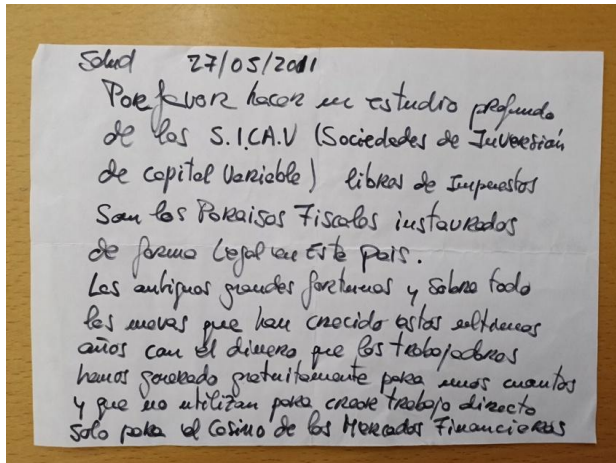 Salud 27/05/2011
Por favor hacer un estudio profundo
de las S.I.CA.V (Sociedades de Inversión
de capital Variable) libres de Impuestos
Son los Paraisos Fiscales instaurados
de forma Legal en Este País.
Las antiguas grandes fortunas y sobre todo
las nuevas que han crecido estos ultimos
años con el dinero que los trabajadores
hemos generado gratuitamente para unos cuantos
y que no utilizan para crear trabajo directo
Solo para el Casino de los Mercados Financieros